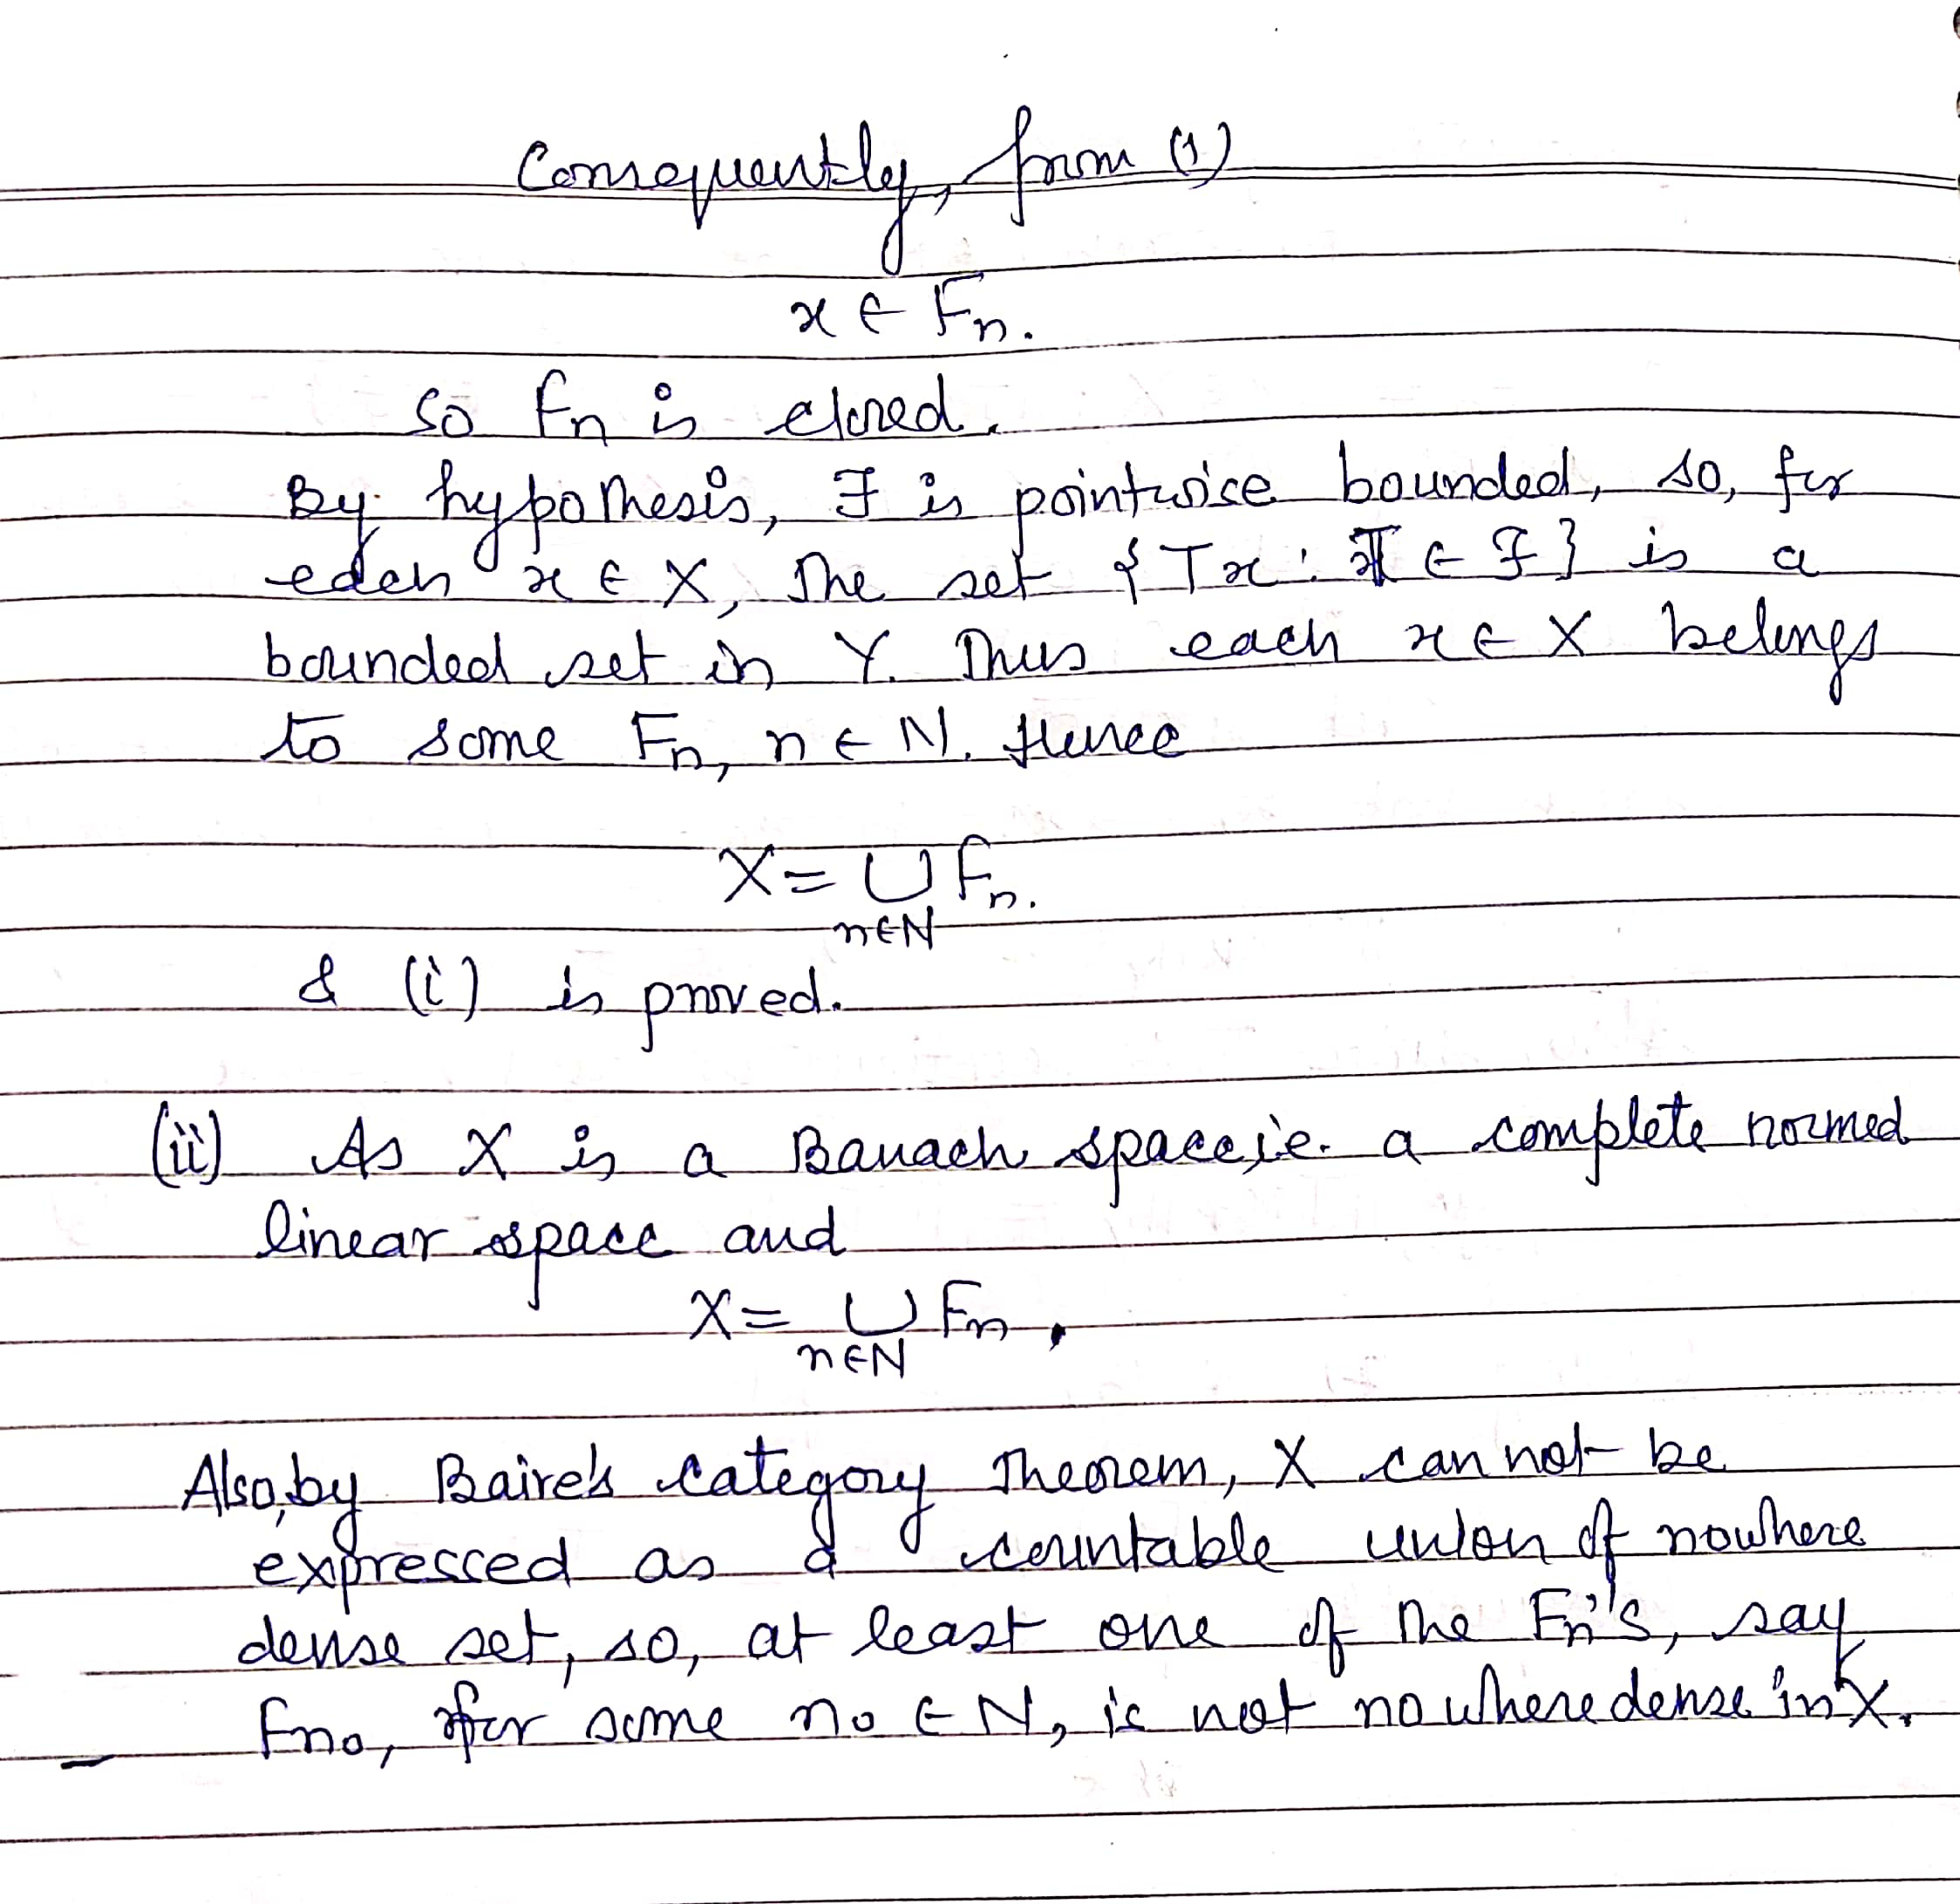 Consequently, from (1)
x ∈ Fn.
So Fn is closed.
By hypothesis, F is pointwise bounded, so, for
each x ∈ X, the set { Tx : T ∈ F } is a
bounded set in Y. Thus each x ∈ X belongs
to some Fn, n ∈ N. Hence
X = ∪ Fn.
n∈N
& (i) is proved.
(ii) As X is a Banach space, i.e. a complete normed
linear space and
X = ∪ Fn,
n∈N
Also, by Baire's category theorem, X can not be
expressed as a countable union of nowhere
dense set, so, at least one of the Fn's, say
Fn₀, for some n₀ ∈ N, is not nowhere dense in X.